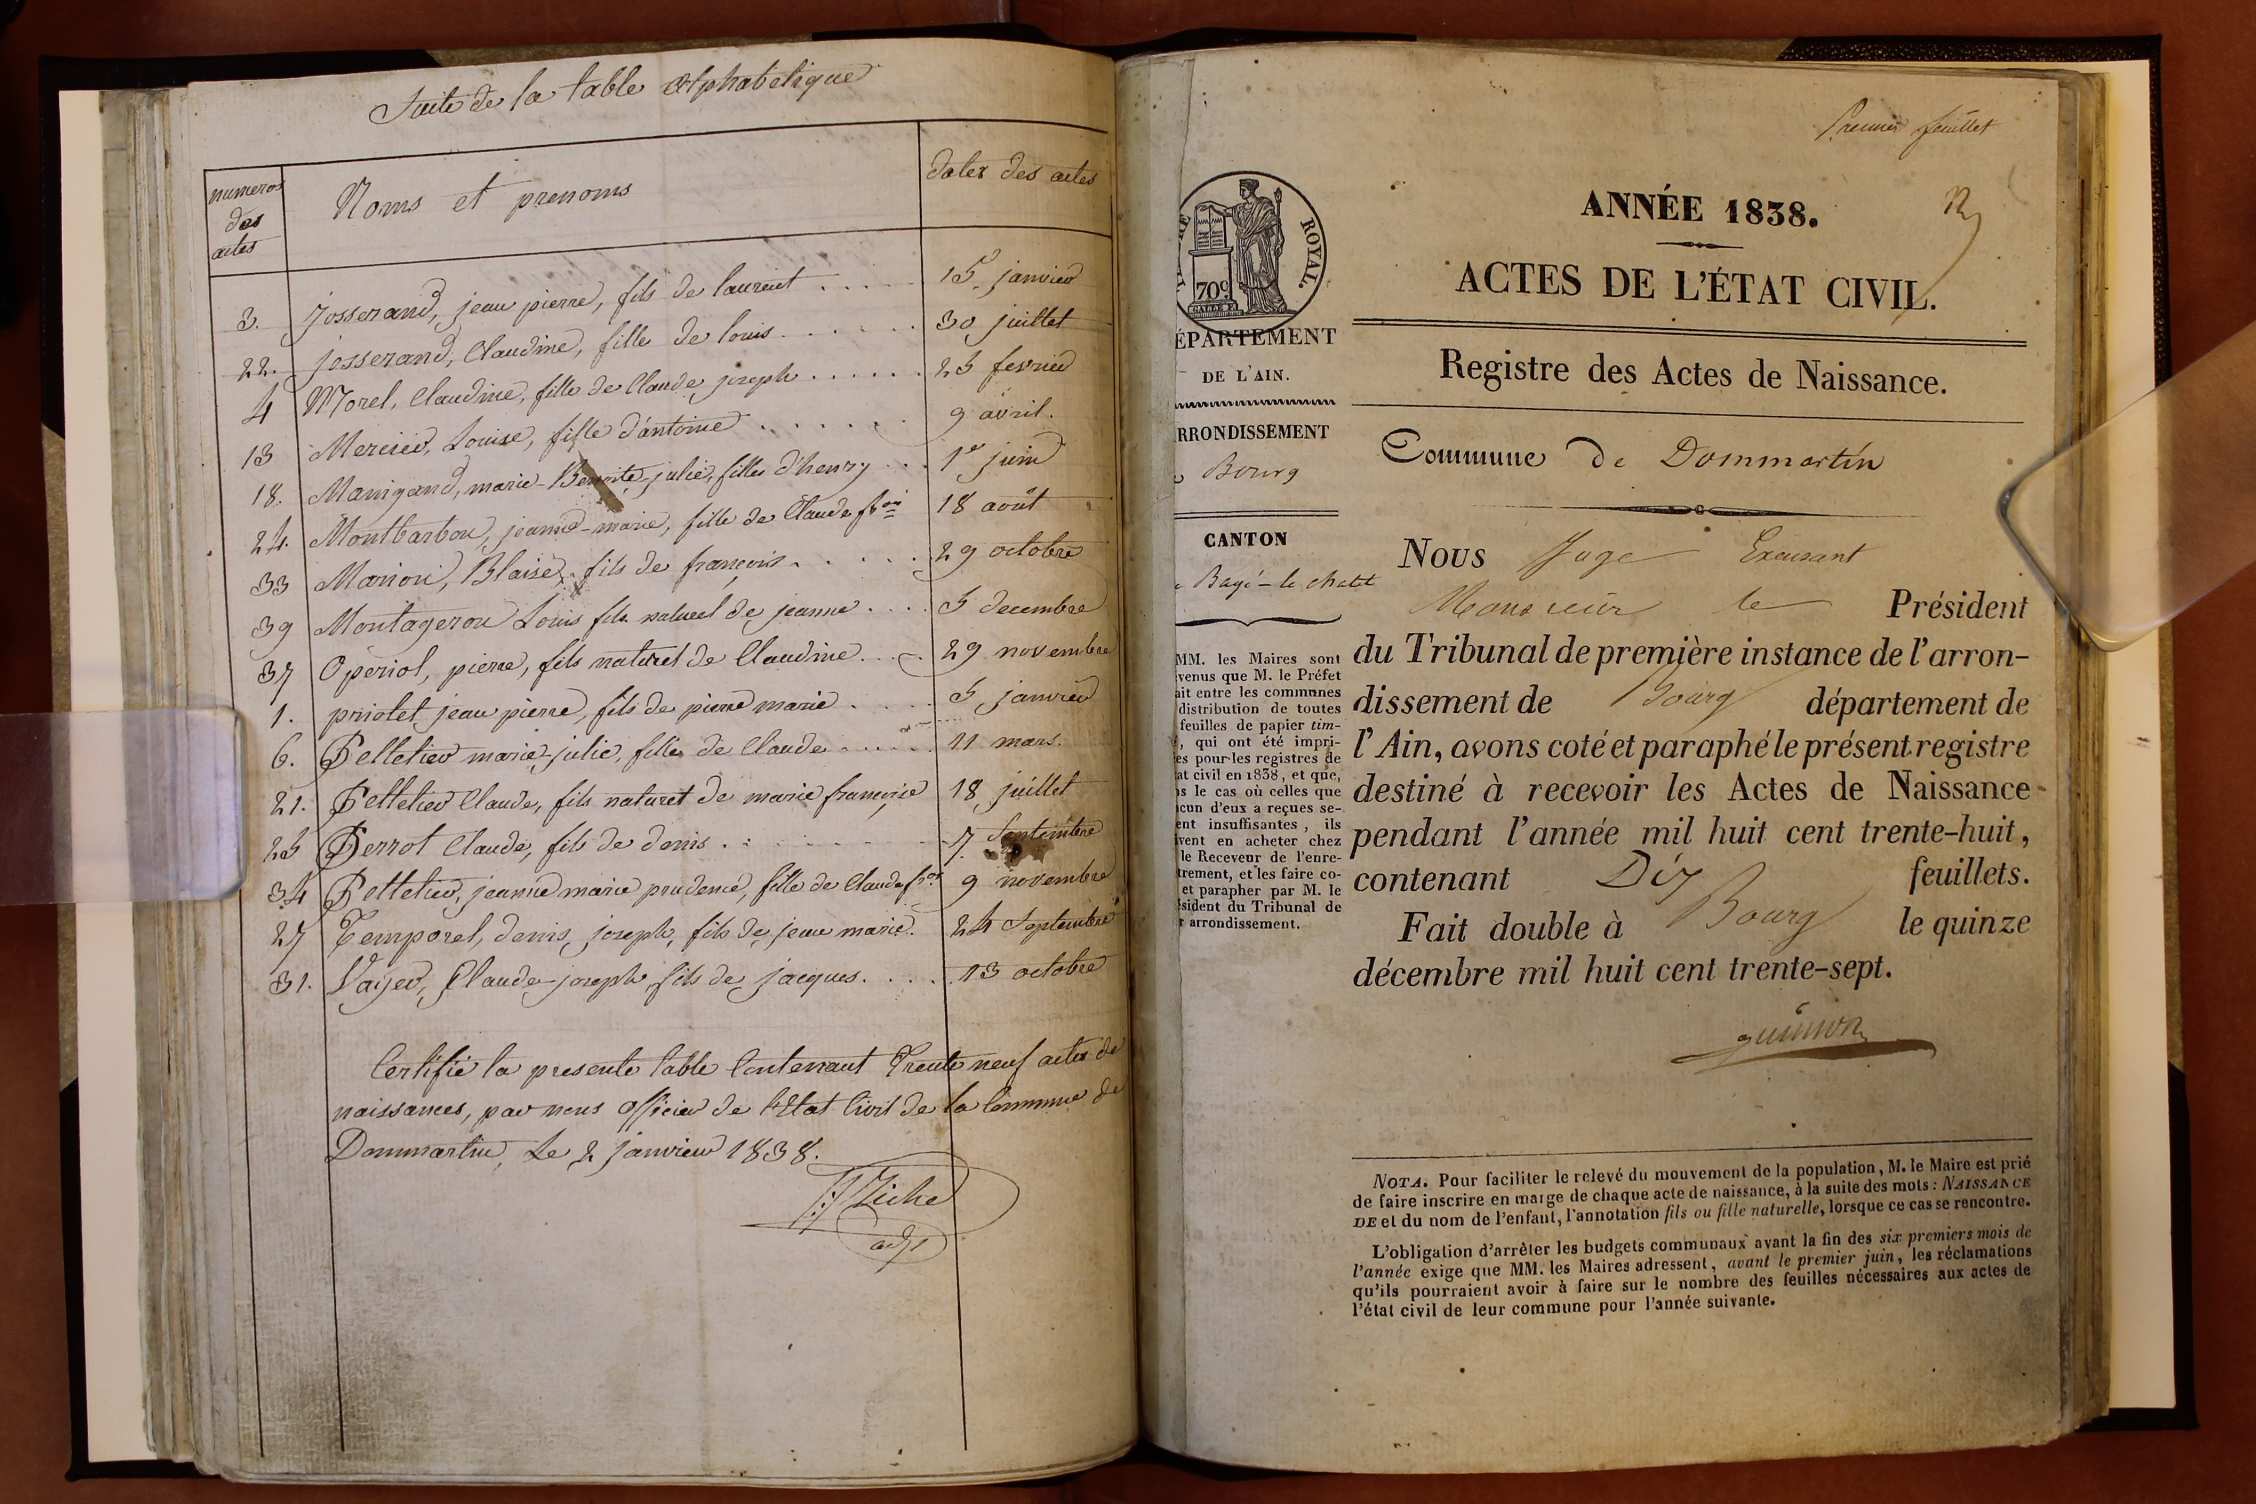 Suite de la table alphabetique
numeros des actes
Noms et prenoms
dates des actes
3. josserand, jean pierre, fils de laurent . . . . . 15 janvier
22. josserand, Claudine, fille de louis . . . . . . 30 juillet
4 Morel, Claudine, fille de Claude joseph . . . . . . 25 fevrier
13 Mercier, Louise, fille d'antoine . . . . . . 9 avril.
18. Manigand, marie-Benoite-julie, fille d'henry . . . 1er juin
24. Montbarbon, jeanne-marie, fille de Claude fcois 18 août
33 Marion, Blaise, fils de francois . . . . . . 29 octobre
39 Montageron Louis fils naturel de jeanne . . . . 5 decembre
37 Operiol, pierre, fils naturel de Claudine . . . . 29 novembre
1. priolet jean pierre, fils de pierre marie . . . . 5 janvier
6. Pelletier marie julie, fille de Claude . . . . . . 11 mars.
21. Pelletier Claude, fils naturel de marie francoise 18 juillet
25 Perrot Claude, fils de denis . . . . . . . . 7. Septembre
34 Pelletier, jeanne marie prudence, fille de Claude fcois 9 novembre
27 Temporel, denis, joseph, fils de jean marie. 24 Septembre
31. Vayer, Claude-joseph, fils de jacques. . . . . 13 octobre
Certifié la presente table Contenant Trente neuf actes de
naissances, par nous officier de l'Etat Civil de la Commune de
Dommartin, Le 2 janvier 1838.
adj
Premier feuillet
ANNÉE 1838.
ACTES DE L'ÉTAT CIVIL.
Registre des Actes de Naissance.
Commune de Dommartin
ROYAL.
70c
ÉPARTEMENT
DE L'AIN.
RRONDISSEMENT
Bourg
CANTON
Bagé-le chatel
MM. les Maires sont
venus que M. le Préfet
ait entre les communes
distribution de toutes
feuilles de papier tim-
, qui ont été impri-
es pour les registres de
at civil en 1838, et que,
s le cas où celles que
cun d'eux a reçues se-
ent insuffisantes, ils
vent en acheter chez
le Receveur de l'enre-
trement, et les faire co-
et parapher par M. le
sident du Tribunal de
r arrondissement.
Nous Juge Excusant
Monsieur le Président
du Tribunal de première instance de l'arron-
dissement de Bourg département de
l'Ain, avons coté et paraphé le présent registre
destiné à recevoir les Actes de Naissance
pendant l'année mil huit cent trente-huit,
contenant Dix feuillets.
Fait double à Bourg le quinze
décembre mil huit cent trente-sept.
NOTA. Pour faciliter le relevé du mouvement de la population, M. le Maire est prié
de faire inscrire en marge de chaque acte de naissance, à la suite des mots: NAISSANCE
DE et du nom de l'enfant, l'annotation fils ou fille naturelle, lorsque ce cas se rencontre.
L'obligation d'arrêter les budgets communaux avant la fin des six premiers mois de
l'année exige que MM. les Maires adressent, avant le premier juin, les réclamations
qu'ils pourraient avoir à faire sur le nombre des feuilles nécessaires aux actes de
l'état civil de leur commune pour l'année suivante.